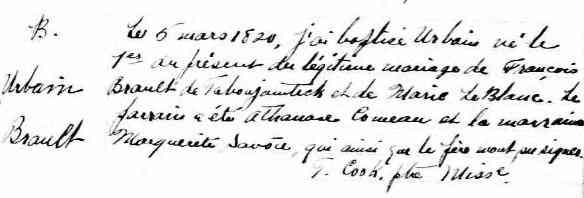 B.
Urbain
Brault
Le 5 mars 1820, j'ai baptisé Urbain né le
1er du présent du légitime mariage de François
Brault de Taboujamteck et de Marie LeBlanc. Le
parrain a été Athanase Comeau et la marraine
Marguerite Savoie, qui ainsi que le père n'ont pu signer.
T. Cook, ptre Misse.